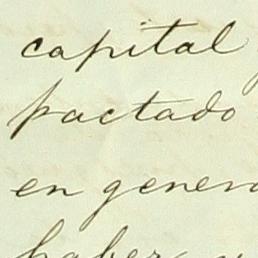 capital
pactado
en genera
haber y